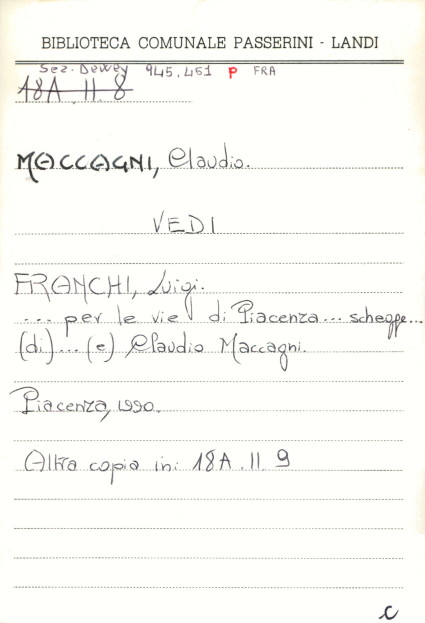 BIBLIOTECA COMUNALE PASSERINI - LANDI
Sez. Dewey 945.461 P FRA
18A.11.8
MACCAGNI, Claudio.
VEDI
FRANCHI, Luigi.
... per le vie di Piacenza... schegge...
(di)...(e) Claudio Maccagni.
Piacenza, 1990.
Altra copia in: 18A.11.9
C